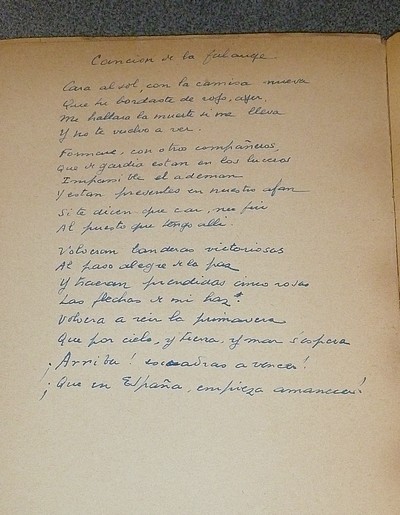 Cancion de la falange
Cara al sol, con la camisa nueva
Que tu bordaste de rojo, ayer,
Me hallara la muerte si me lleva
Y no te vuelvo a ver.
Formare, con otros compañeros,
Que de gardia estan en los luceros
Impasible el ademan
Y estan presentes en nuestro afan
Si te dicen que cai, me fui
Al puesto que tengo alli.
Volveran banderas victoriosas
Al paso alegre de la paz
Y traeran prendidas cinco rosas
Las flechas de mi haz*.
Volvera a reir la primavera
Que por cielo, y tierra, y mar s'espera
¡Arriba! escoadras a vencer!
¡Que en España, empieza amanecer!